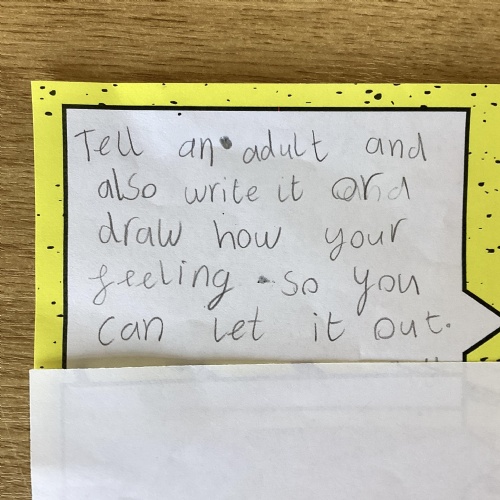 Tell an adult and
also write it and
draw how your
feeling so you
can let it out.